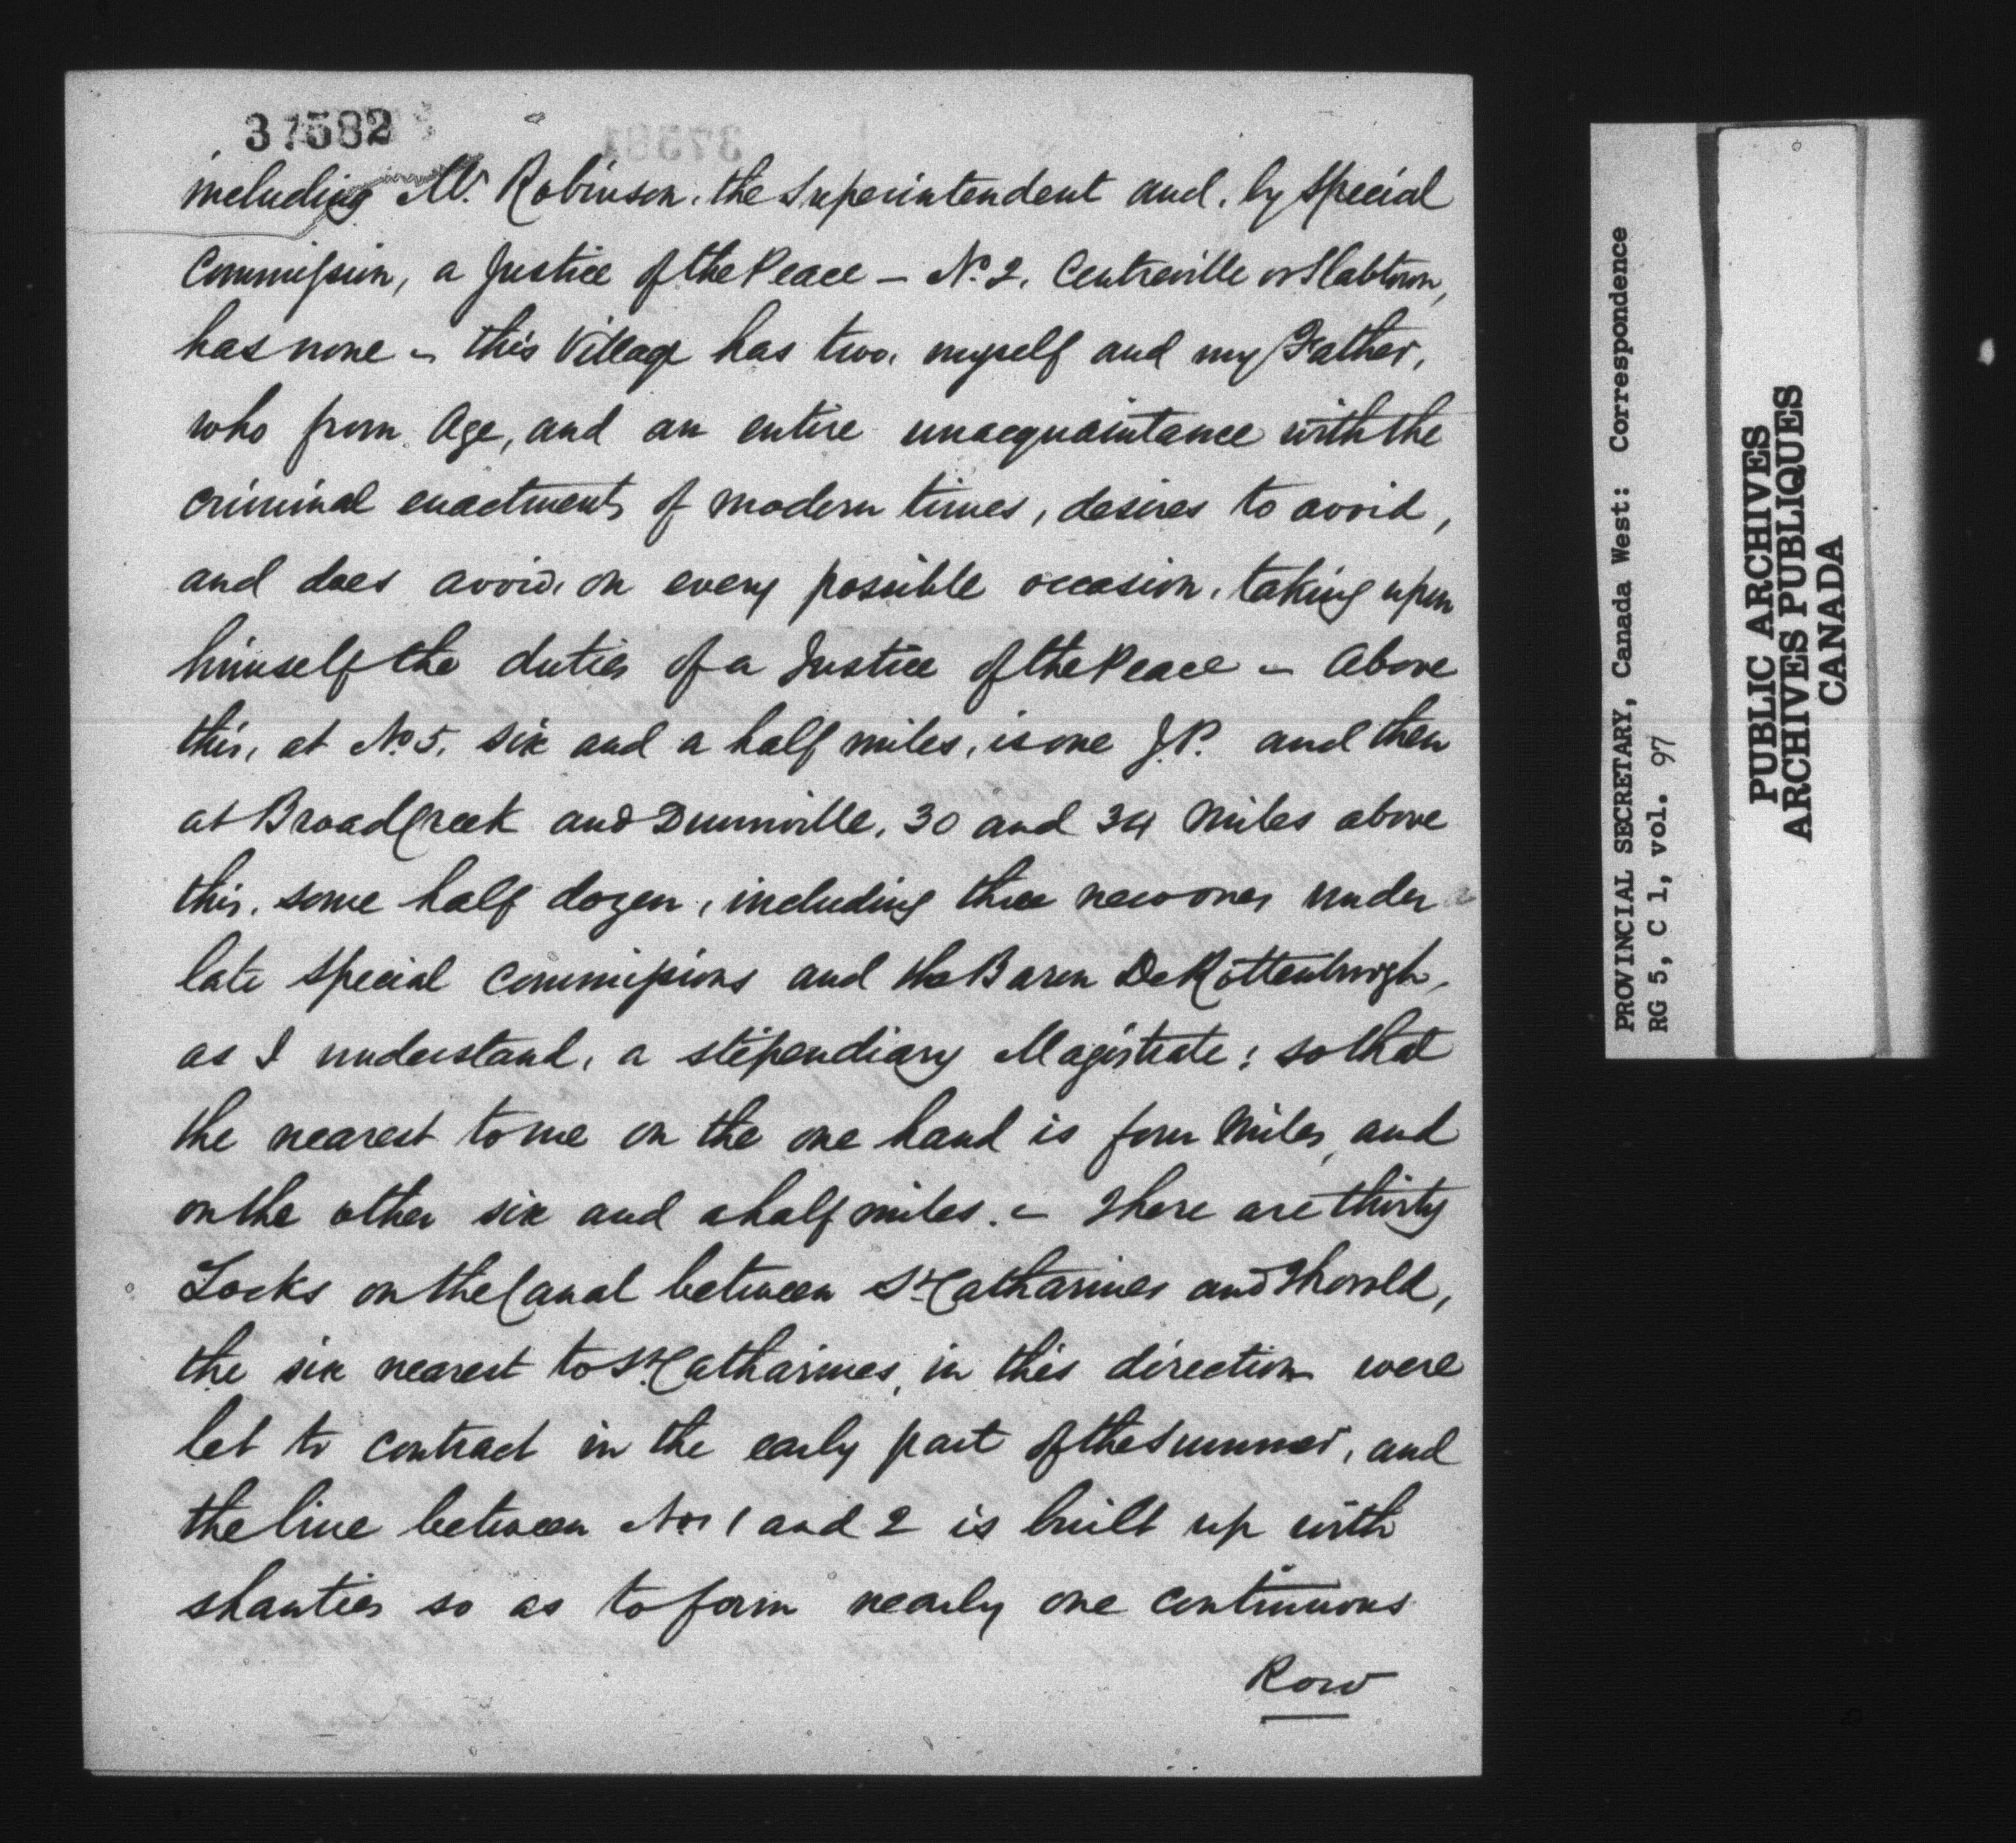 37582
including Mr. Robinson, the Superintendent and, by special
Commission, a Justice of the Peace – No. 2. Centreville or Slabtown,
has none – this Village has two, myself and my Father,
who from Age, and an entire unacquaintance with the
criminal enactments of modern times, desires to avoid,
and does avoid, on every possible occasion, taking upon
himself the duties of a Justice of the Peace – Above
this, at No 5, six and a half miles, is one J.P. and then
at Broad Creek and Dunnville, 30 and 34 Miles above
this, some half dozen, including three new ones under a
late special commissions and the Baron De Rottenburgh,
as I understand, a stipendiary Magistrate; so that
the nearest to me on the one hand is four Miles, and
on the other six and a half miles. – There are thirty
Locks on the Canal between St Catharines and Thorold,
the six nearest to St Catharines, in this direction were
let to contract in the early part of the Summer, and
the line between Nos 1 and 2 is built up with
shanties so as to form nearly one continuous
Row
PROVINCIAL SECRETARY, Canada West: Correspondence
RG 5, C 1, vol. 97
PUBLIC ARCHIVES
ARCHIVES PUBLIQUES
CANADA